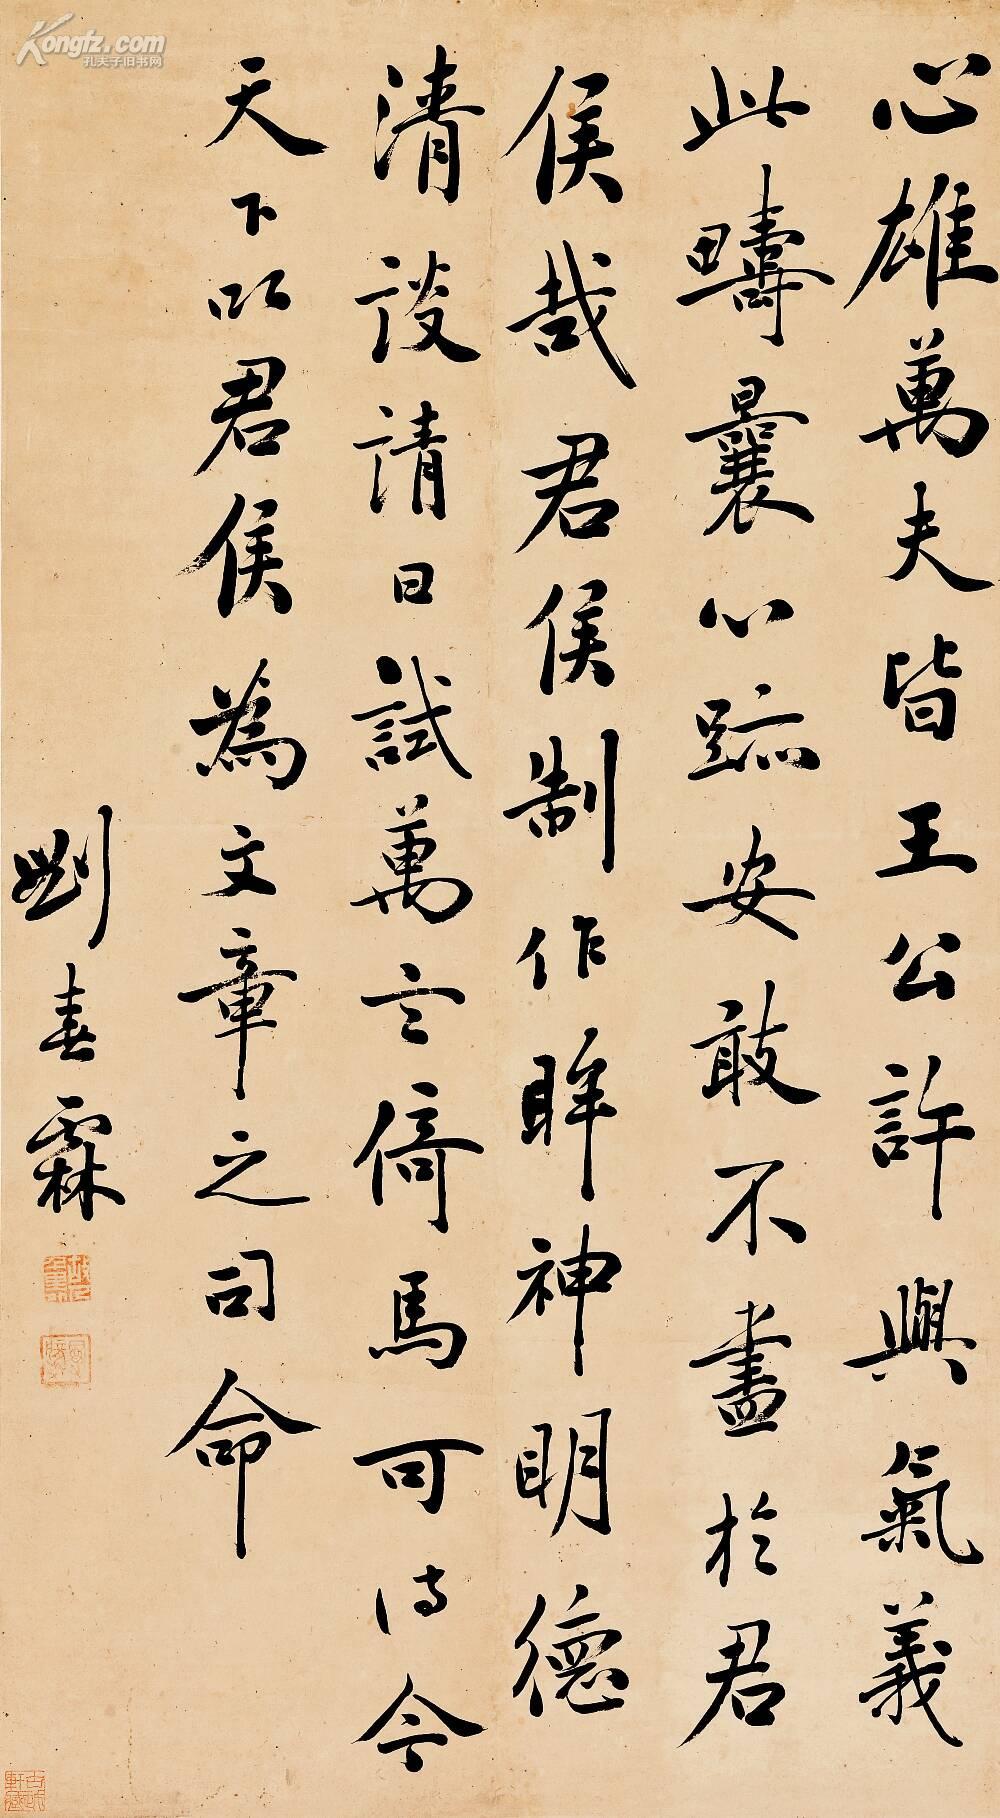 心雄萬夫皆王公許與氣義
此疇曩心跡安敢不盡於君
侯哉君侯制作眸神明德
清談請日試萬言倚馬可待今
天下以君侯為文章之司命
劉春霖
Kongfz.com
孔夫子旧书网